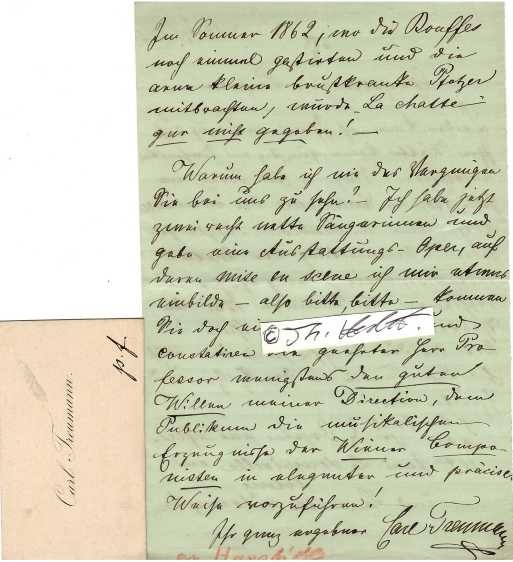 Im Sommer 1862, wo die Bouffes
noch einmal gastirten und die
arme kleine brustkranke Pfotzer
mitbrachten, wurde „La chatte"
gar nicht gegeben! —
Warum habe ich nie das Vergnügen
Sie bei uns zu sehn! — Ich habe jetzt
zwei recht nette Sängerinnen und
gebe eine Ausstattungs-Oper, auf
deren mise en scène ich mir etwas
einbilde — also bitte, bitte — kommen
Sie doch und
constatiren geehrter Herr Pro-
fessor wenigstens den guten
Willen meiner Direction, dem
Publikum die musikalischen
Erzeugnisse der Wiener Compo-
nisten in eleganter und präciser
Weise vorzuführen!
Ihr ganz ergebner Carl Treumann
an Hanslick
© Th.
Carl Treumann.
p. f.